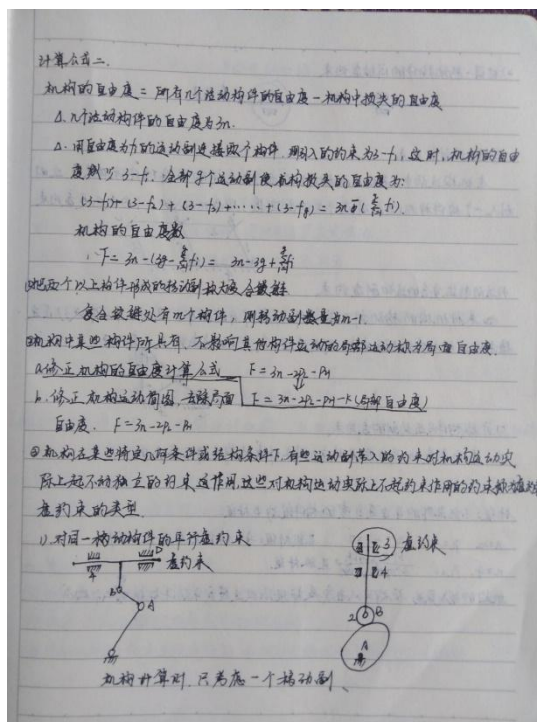 计算公式二.
机构的自由度 = 所有n个活动构件的自由度-机构中损失的自由度
Δ. n个活动构件的自由度为3n.
Δ. 用自由度为f的运动副连接两个构件. 则引入的约束为3-f, 这时, 机构的自由
度减少 3-f. 全部g个运动副使机构损失的自由度为:
(3-f₁)+(3-f₂)+(3-f₃)+……+(3-fg)= 3
机构的自由度数
F=3n-(3g-Σfi)= 3n-3g+Σfi
两个以上构件形成的转动副称为复合铰链
复合铰链处有m个构件, 则转动副数量为m-1.
机构中某些构件所具有. 不影响其他构件运动的局部运动称为局部自由度.
a.修正机构的自由度计算公式 F=3n-2PL-PH
b.修正机构运动简图, 去除局部 F=3n-2PL-PH-k(局部自由度)
自由度. F=3n-2PL-PH
③机构在某些特定几何条件或结构条件下, 有些运动副带入的约束对机构运动实
际上起不动独立的约束这作用, 这些对机构运动实际上不起约束作用的约束称为虚约
虚约束的类型.
1). 对同一移动构件的平行虚约束
D 3 虚约束
虚约束
4
B A 2 B
A
机构计算时. 只考虑一个移动副、